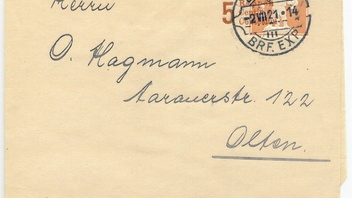 Herrn
5
-2.VII.21.-14
III
BRF. EXP.
O. Hagmann
Aarauerstr. 122
Olten.